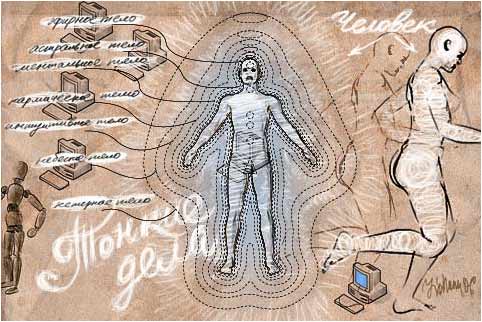 эфирное тело
астральное тело
ментальное тело
кармическое тело
интуитивное тело
небесное тело
кетерное тело
Человек
Тонкие
дела